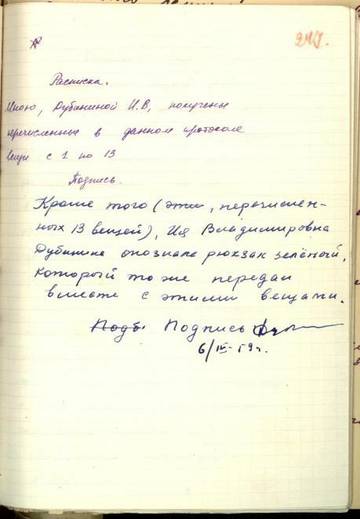 247.
Расписка.
Мною, Дубининой И.В, получены
перечисленные в данном протоколе
вещи с 1 по 13
Подпись.
Кроме того (эти, перечислен-
ных 13 вещей), Ия Владимировна
Дубинина опознала рюкзак зелёный,
который тоже передан
вместе с этими вещами.
Подп. Подпись
6/IV-59г.